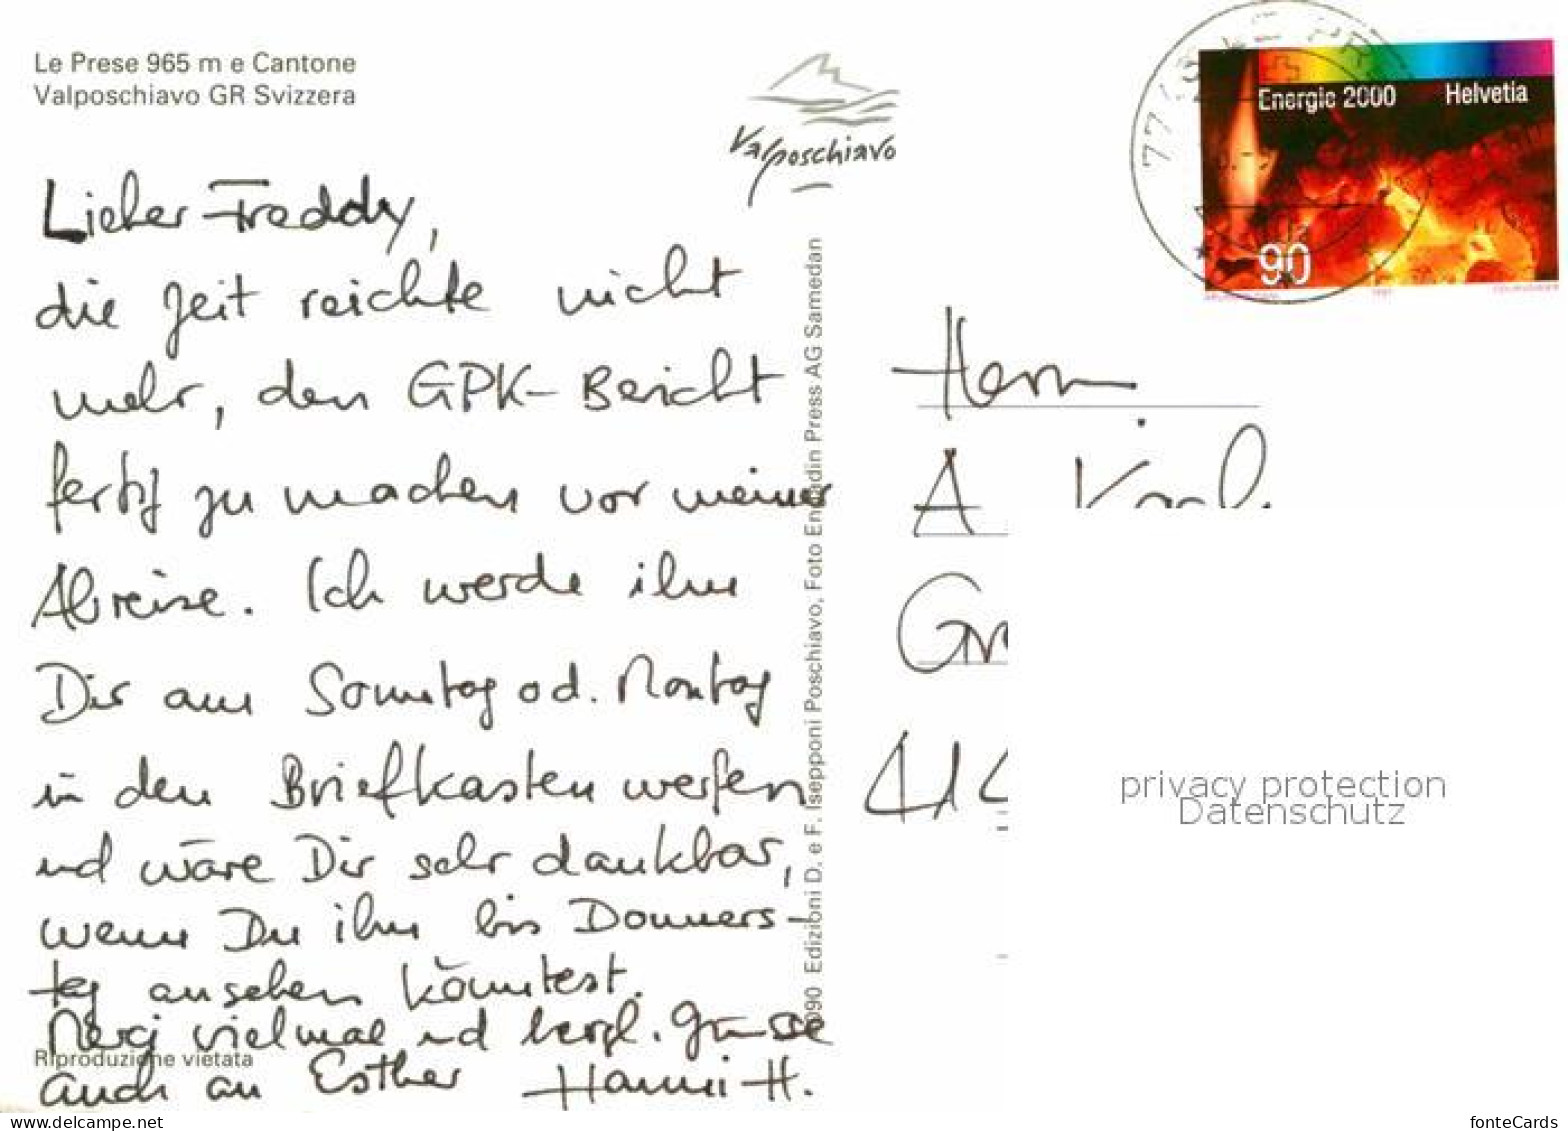 Le Prese 965 m e Cantone
Valposchiavo GR Svizzera
Valposchiavo
Energie 2000 Helvetia
90
Lieber Freddy,
die Zeit reichte nicht
mehr, den GPK-Bericht
fertig zu machen vor meiner
Abreise. Ich werde ihn
Dir am Sonntag od. Montag
in den Briefkasten werfen
und wäre Dir sehr dankbar,
wenn Du ihn bis Donners-
tag ansehen könntest.
Merci vielmal und herzl. Grüsse
auch an Esther Hanni H.
Riproduzione vietata
090 Edizioni D. e F. Isepponi Poschiavo, Foto Engadin Press AG Samedan
Herrn
A
privacy protection
Datenschutz
www.delcampe.net
fonteCards